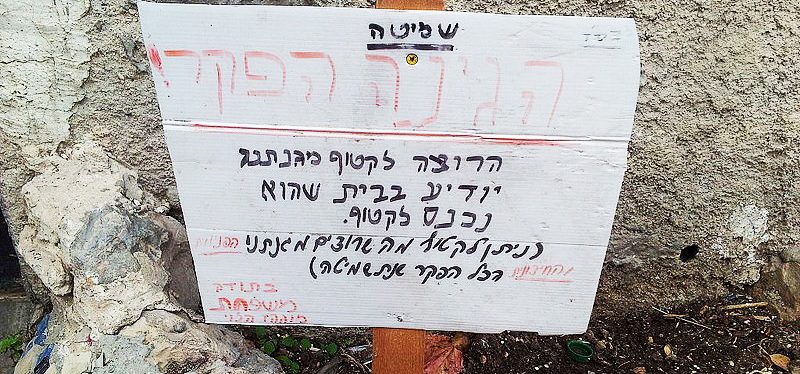 בס"ד
שמיטה
הגינה הפקר!
הרוצה לקטוף מגנתנו
יודיע בבית שהוא
נכנס לקטוף.
(ניתן לקטוף מה שרוצים מגנתנו הפנימית
והחיצונית הכל הפקר שנת שמיטה)
בתודה
משפחת